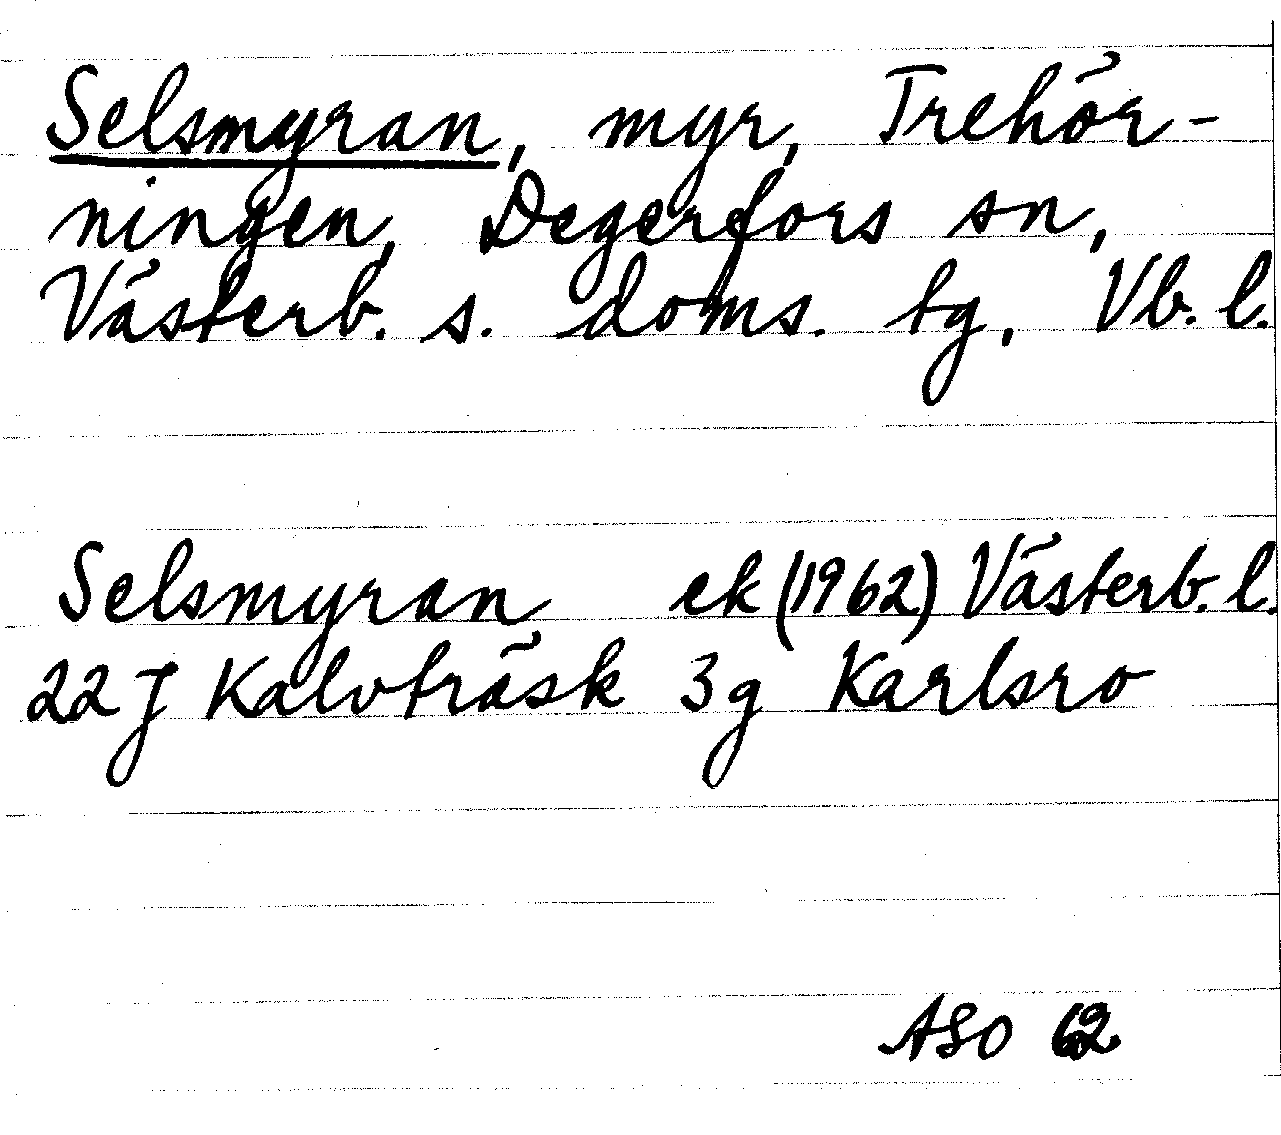 Selsmyran, myr, Trehör-
ningen, Degerfors sn,
Västerb. s. doms. tg, Vb. l.
Selsmyran ek (1962) Västerb. l.
22 J Kalvträsk 3g Karlsro
ASO 62